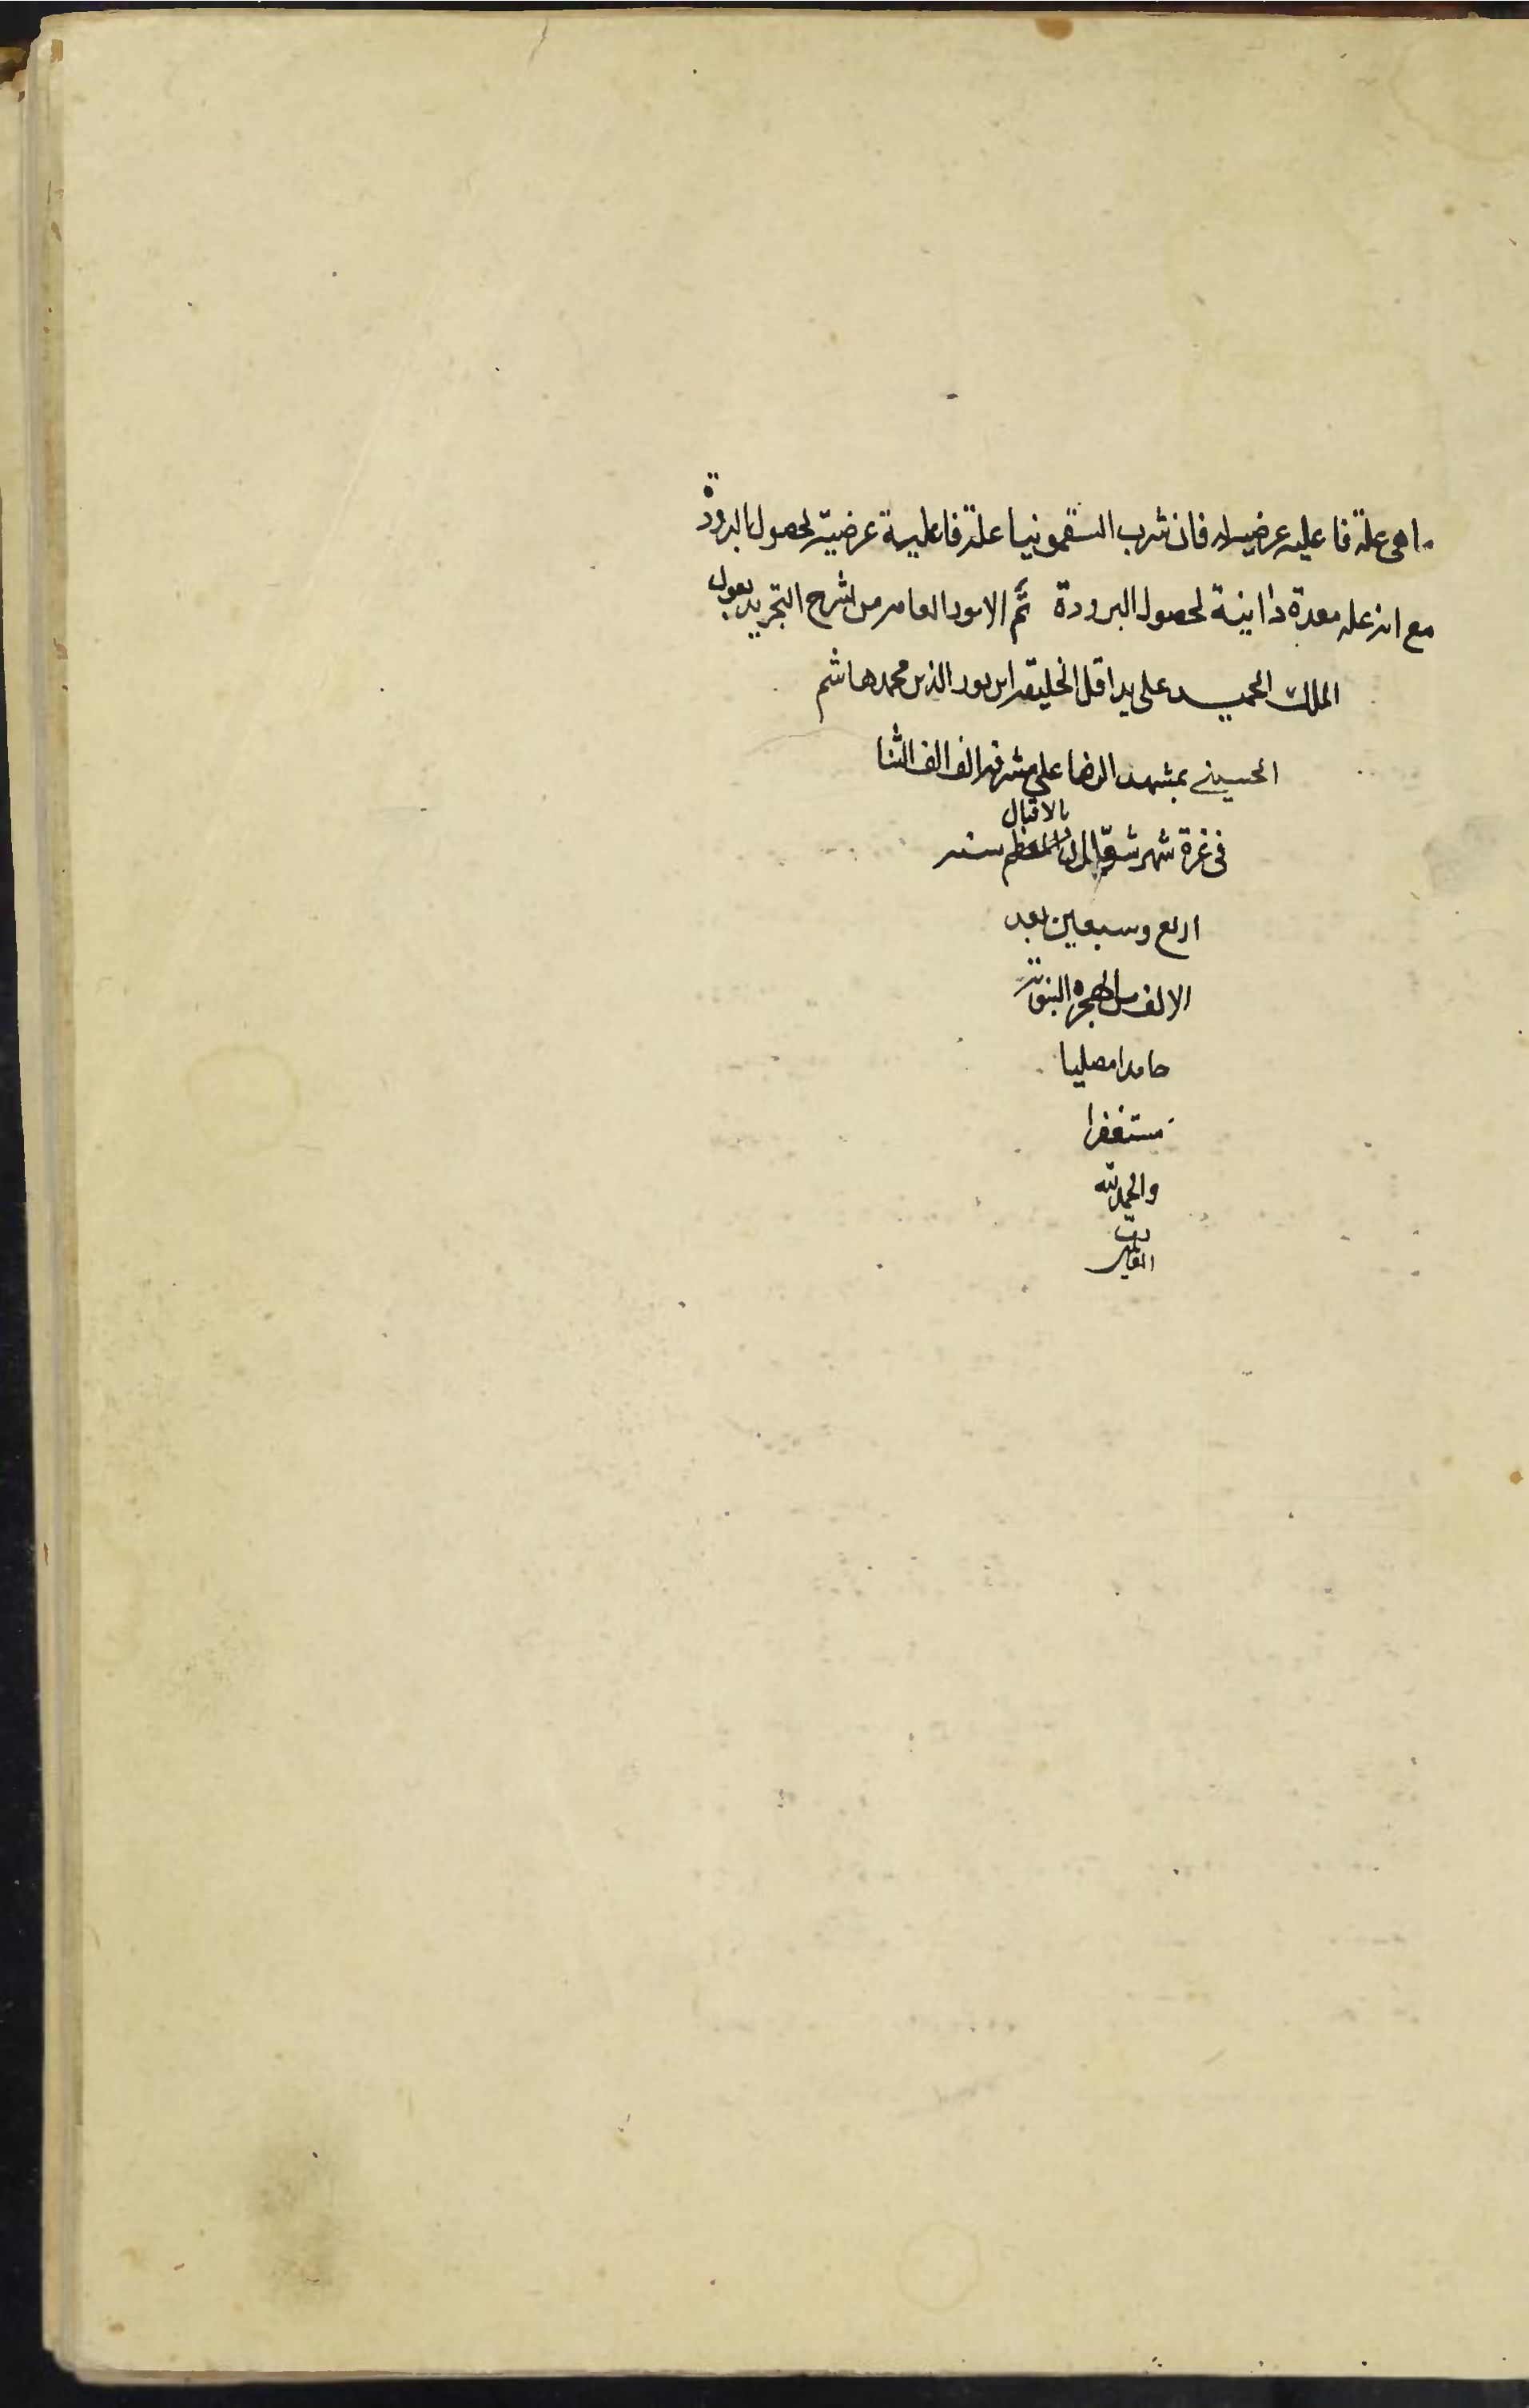 ما هى علة فاعليه عرضيه له فان شرب السقمونيا علة فاعلية عرضية لحصول البرودة
مع انه عله معدة ذاتية لحصول البرودة تم الامور العامه من شرح التجريد بعون
الملك الحميد على يد اقل الخليقه ابن نور الدين محمد هاشم
الحسينى بمشهد الرضا على مشرفه الف الف الثنا
فى غرة شهر شوال بالاقبال سنه
اربع وسبعين بعد
الالف من الهجرة النبوية
حامدا مصليا
مستغفرا
والحمد لله
رب
العالمين